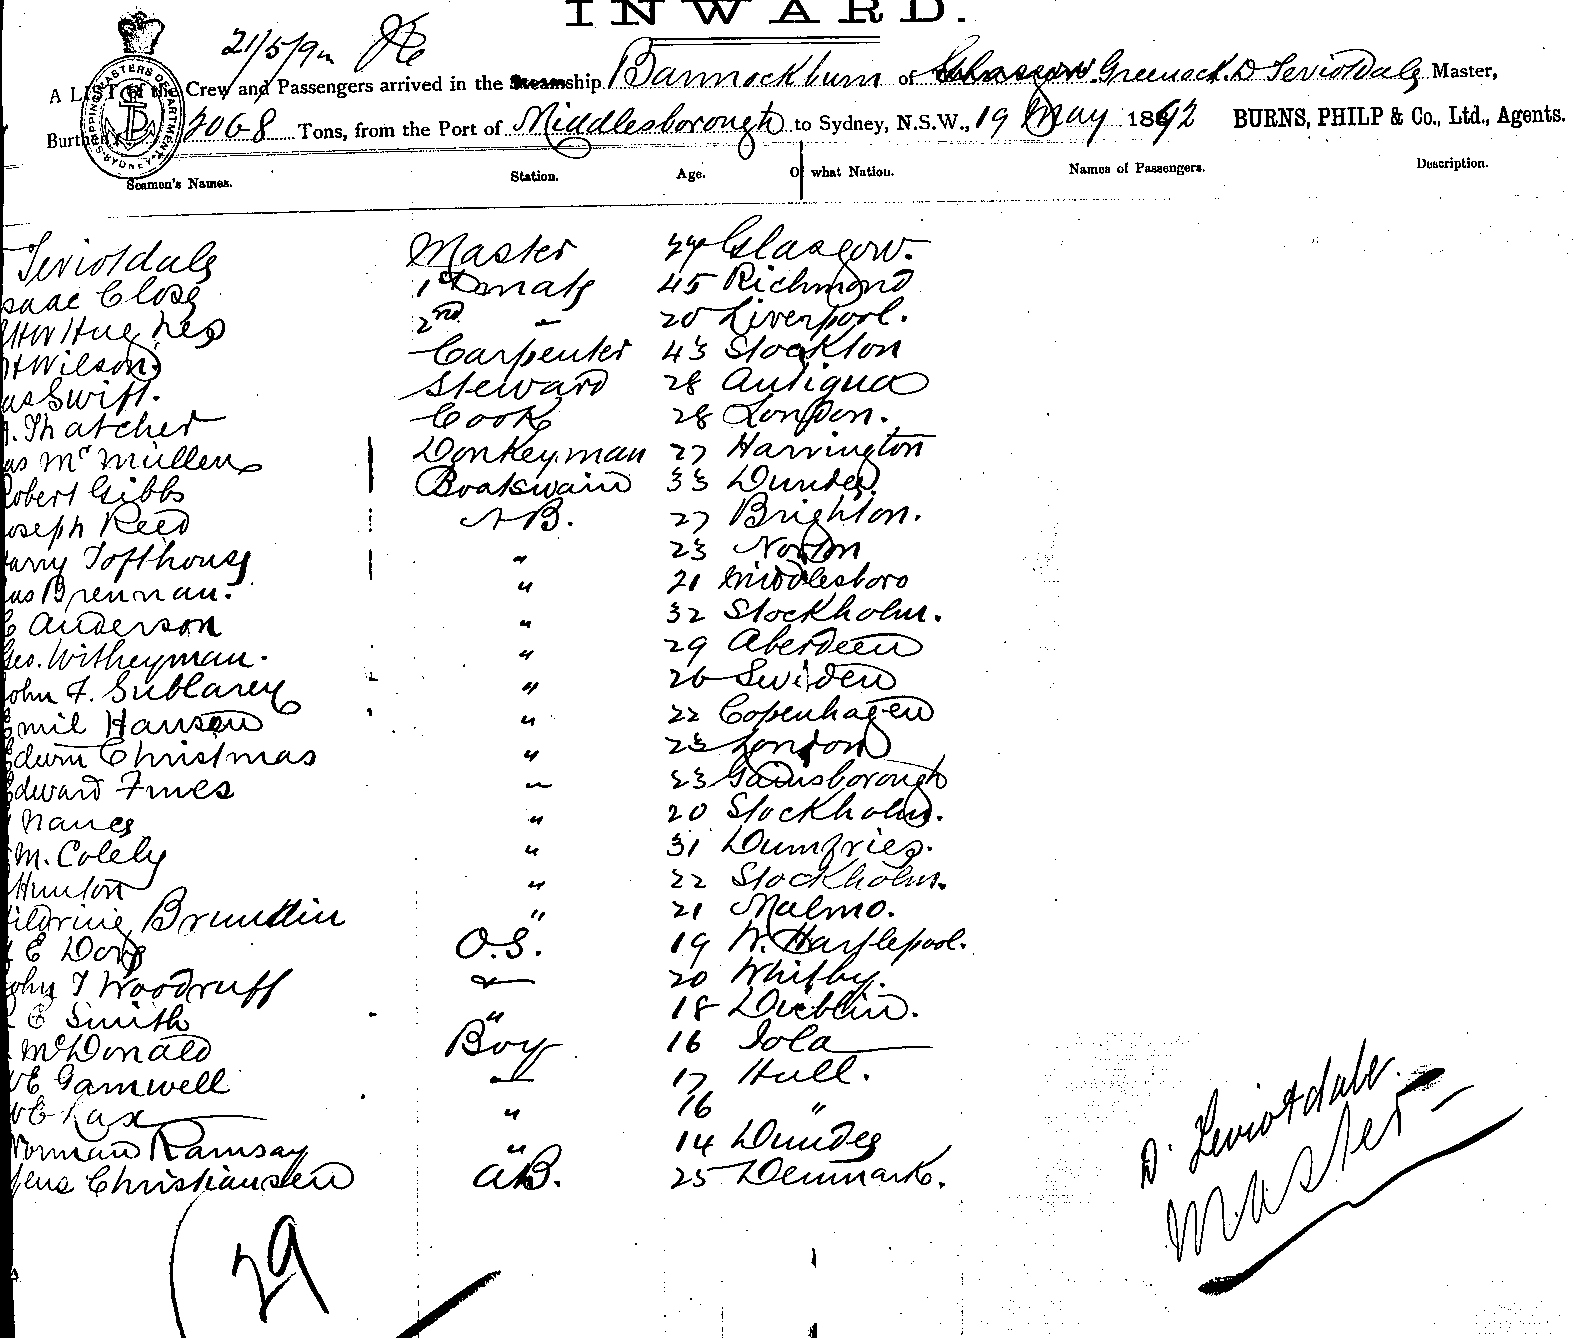 INWARD.
21/5/92
A LIST of the Crew and Passengers arrived in the Steamship Bannockburn of Glasgow Greenock. D Teviotdale Master,
Burthen 2068 Tons, from the Port of Middlesborough to Sydney, N.S.W., 19 May 1892 BURNS, PHILP & Co., Ltd., Agents.
Seamen's Names. Station. Age. Of what Nation. Names of Passengers. Description.
Teviotdale Master Glasgow.
saac Close 1st mate 45 Richmond
Hughes 2nd 20 Liverpool.
H Wilson Carpenter 43 Stockton
as Swift. Steward 28 Antigua
. Thatcher Cook 28 London.
as McMullen Donkeyman 27 Harrington
Robert Gibbs Boatswain 33 Dundee
oseph Reed AB. 27 Brighton.
arry Tofthouse " 23
as Brennan. " 21 Middlesboro
C Anderson " 32 Stockholm.
Geo. Witheyman. " 29 Aberdeen
John F. " 26 Sweden
Emil Hansen " 22 Copenhagen
Edwin Christmas " 23 London
Edward Fines 23 Gainsborough
" 20 Stockholm.
M. Colely " 31 Dumfries.
Hunton " 22 Stockholm.
Brundin " 21 Malmo.
E Dove O.S. 19 W. Hartlepool.
John T Woodruff 20 Whitby.
E Smith " 18 Dublin.
McDonald Boy 16 Iola
E Gamwell 17 Hull.
E Lax " 16 "
Norman Ramsay " 14 Dundee
Jens Christiansen AB. 25 Denmark.
D. Teviotdale.
Master
29